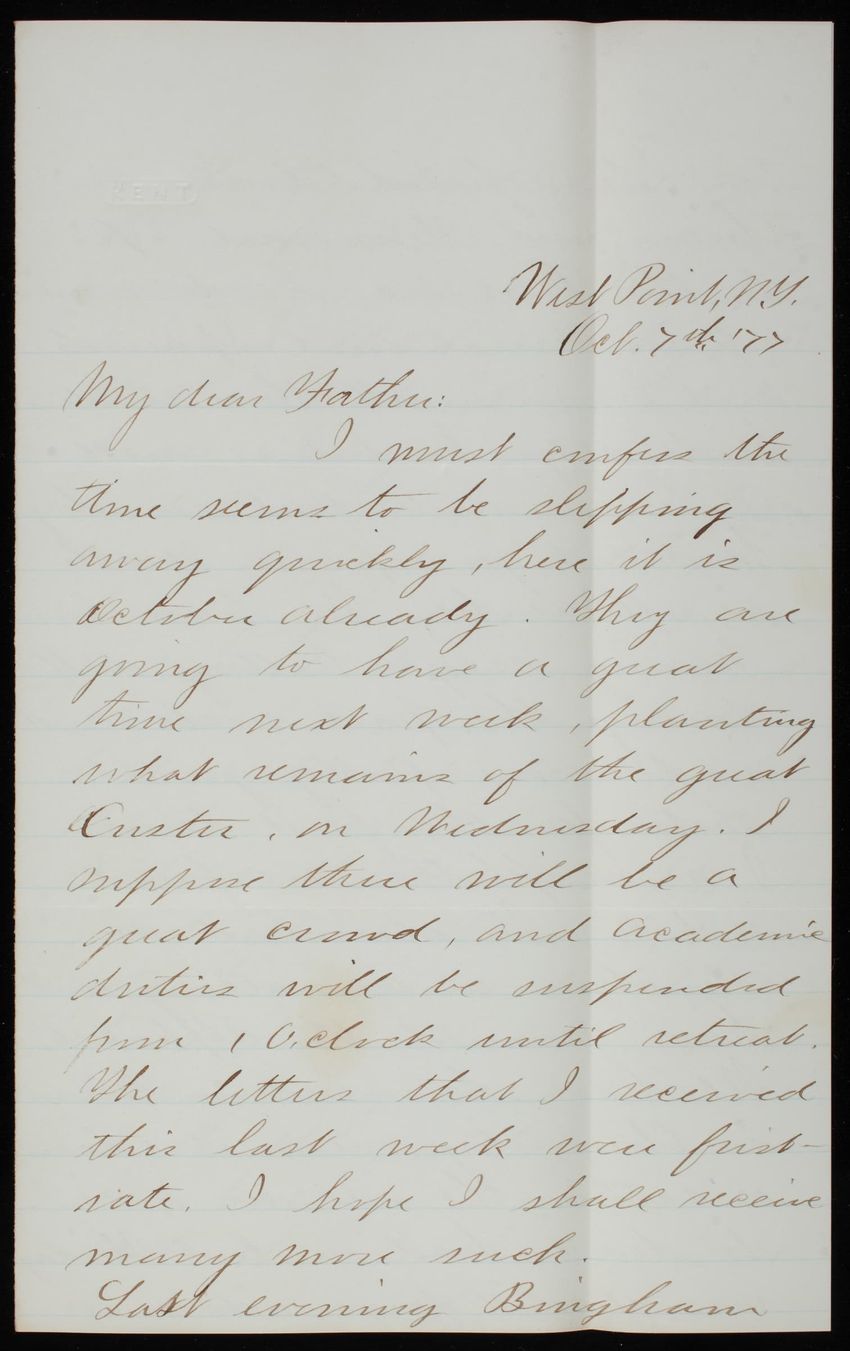 KENT
West Point, N.Y.
Oct. 7th '77
My dear Father:
I must confess the
time seems to be slipping
away quickly, here it is
October already. They are
going to have a great
time next week, planting
what remains of the great
Custer, on Wednesday. I
suppose there will be a
great crowd, and academic
duties will be suspended
from 1 O'clock until retreat.
The letters that I received
this last week were first-
rate. I hope I shall receive
many more such.
Last evening Bingham